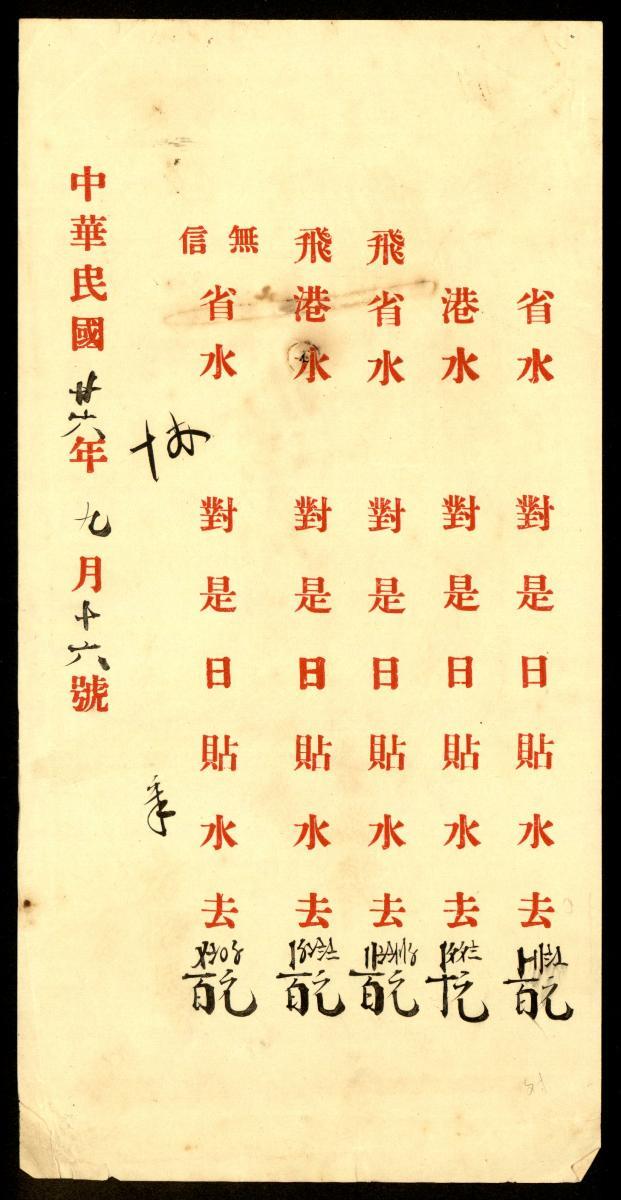 省水 對是日貼水去 百元
港水 對是日貼水去 十元
飛省水 對是日貼水去 百元
飛港水 對是日貼水去 百元
無信省水 對是日貼水去 百元
中華民國廿六年九月十六號